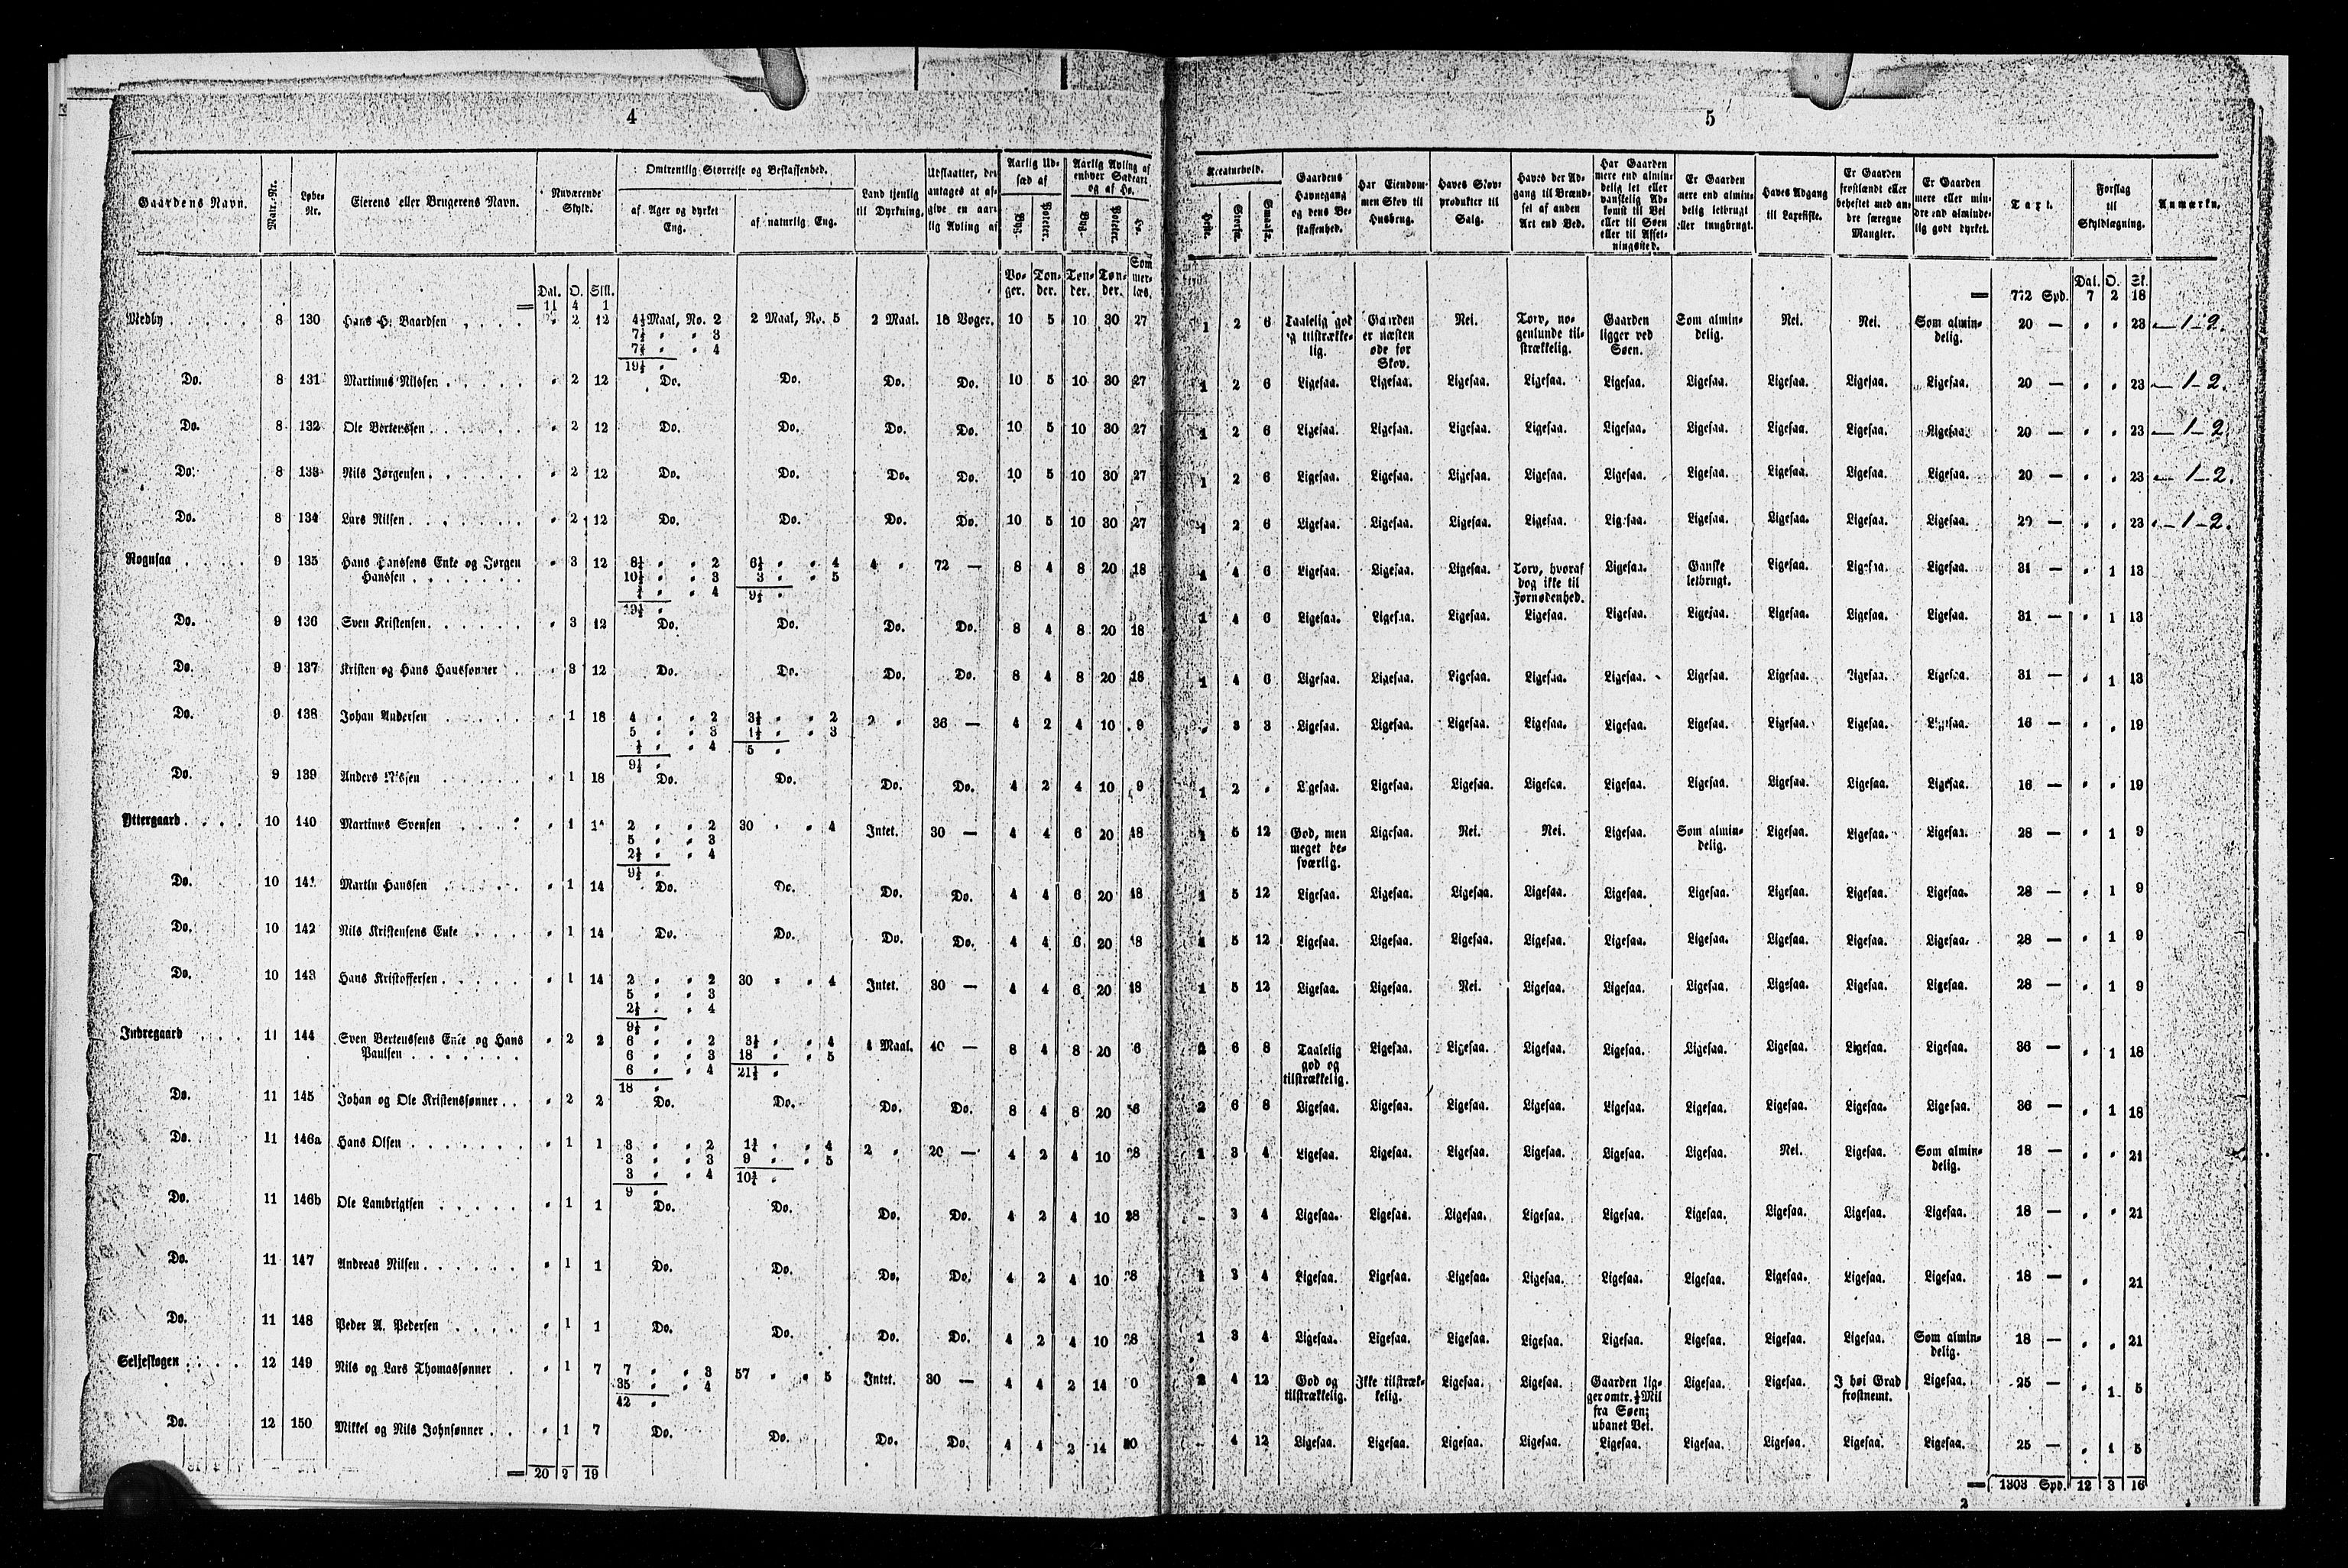 4
Gaardens Navn. Matr.-Nr. Løbe-Nr. Eierens eller Brugerens Navn. Nuværende Skyld. Omtrentlig Størrelse og Beskaffenhed. af Ager og dyrket Eng. af naturlig Eng. Land tjenlig til Dyrkning. Udslaatter, der antages at afgive en aarlig Avling af Aarlig Udsæd af Byg. Poteter. Aarlig Avling af enhver Sædeart og af Hø. Byg. Poteter. Hø.
Dal. O. Skll. Voger. Tønder. Tønder. Tønder. Sommerlæs.
= 11 4 1
Medby 8 130 Hans H. Baardsen " 2 12 4½ Maal, No. 2 2 Maal, No. 5 2 Maal. 18 Voger. 10 5 10 30 27
7½ " " 3
7½ " " 4
19½ "
Do. 8 131 Martinus Nilssen " 2 12 Do. Do. Do. Do. 10 5 10 30 27
Do. 8 132 Ole Bertenssen " 2 12 Do. Do. Do. Do. 10 5 10 30 27
Do. 8 133 Nils Jørgensen " 2 12 Do. Do. Do. Do. 10 5 10 30 27
Do. 8 134 Lars Nilsen " 2 12 Do. Do. Do. Do. 10 5 10 30 27
Rognsaa 9 135 Hans Hanssens Enke og Jørgen Hanssen " 3 12 8¼ " " 2 6½ " " 4 4 " 72 — 8 4 8 20 18
10½ " " 3 3 " " 5
" " 4 9½ "
19½ "
Do. 9 136 Sven Kristensen " 3 12 Do. Do. Do. Do. 8 4 8 20 18
Do. 9 137 Kristen og Hans Hanssønner " 3 12 Do. Do. Do. Do. 8 4 8 20 18
Do. 9 138 Johan Andersen " 1 18 4 " " 2 3½ " " 2 2 " 36 — 4 2 4 10 9
5 " " 3 1½ " " 3
½ " " 4 5 "
9½ "
Do. 9 139 Anders Nilsen " 1 18 Do. Do. Do. Do. 4 2 4 10 9
Yttergaard 10 140 Martinus Svensen " 1 14 2 " " 2 30 " " 4 Intet. 30 — 4 4 6 20 18
5 " " 3
2½ " " 4
9½ "
Do. 10 141 Martin Hanssen " 1 14 Do. Do. Do. Do. 4 4 6 20 18
Do. 10 142 Nils Kristensens Enke " 1 14 Do. Do. Do. Do. 4 4 6 20 18
Do. 10 143 Hans Kristoffersen " 1 14 2 " " 2 30 " " 4 Intet. 30 — 4 4 6 20 18
5 " " 3
2½ " " 4
9½ "
Indregaard 11 144 Sven Bertenssens Enke og Hans Paulsen " 2 2 6 " " 2 3½ " " 4 4 Maal. 40 — 8 4 8 20
6 " " 3 18 " " 5
6 " " 4 21½ "
18 "
Do. 11 145 Johan og Ole Kristenssønner " 2 2 Do. Do. Do. Do. 8 4 8 20
Do. 11 146a Hans Olsen " 1 1 3 " " 2 1¾ " " 4 2 " 20 — 4 2 4 10 28
3 " " 3 9 " " 5
3 " " 4 10¾ "
9 "
Do. 11 146b Ole Lambrigtsen " 1 1 Do. Do. Do. Do. 4 2 4 10 28
Do. 11 147 Andreas Nilsen " 1 1 Do. Do. Do. Do. 4 2 4 10 28
Do. 11 148 Peder A. Pedersen " 1 1 Do. Do. Do. Do. 4 2 4 10 28
Seljeskogen 12 149 Nils og Lars Thomassønner " 1 7 7 " " 3 57 " " 5 Intet. 30 — 4 4 2 14
35 " " 4
42 "
Do. 12 150 Mikkel og Nils Johnsønner " 1 7 Do. Do. Do. Do. 4 4 2 14
= 20 2 19
5
Kreaturhold. Heste. Storfæ. Smaafæ. Gaardens Havnegang og dens Beskaffenhed. Har Eiendommen Skov til Husbrug. Haves Skovprodukter til Salg. Haves der Adgang til Brændsel af anden Art end Ved. Har Gaarden mere end almindelig let eller vanskelig Adkomst til Vei eller til Søen eller til Afsetningssted. Er Gaarden mere end almindelig letbrugt eller tungbrugt. Haves Adgang til Laxefiske. Er Gaarden frostlændt eller beheftet med andre særegne Mangler. Er Gaarden mere eller mindre end almindelig godt dyrket. Taxt. Forslag til Skyldlægning. Anmærkn.
Dal. O. Sk.
= 772 Spd. 7 2 18
1 2 6 Taalelig god og tilstrækkelig. Gaarden er næsten øde for Skov. Nei. Torv, nogenlunde tilstrækkelig. Gaarden ligger ved Søen. Som almindelig. Nei. Nei. Som almindelig. 20 — " " 23 — 1 - 2.
1 2 6 Ligesaa. Ligesaa. Ligesaa. Ligesaa. Ligesaa. Ligesaa. Ligesaa. Ligesaa. Ligesaa. 20 — " " 23 — 1 - 2.
1 2 6 Ligesaa. Ligesaa. Ligesaa. Ligesaa. Ligesaa. Ligesaa. Ligesaa. Ligesaa. Ligesaa. 20 — " " 23 — 1 - 2
1 2 6 Ligesaa. Ligesaa. Ligesaa. Ligesaa. Ligesaa. Ligesaa. Ligesaa. Ligesaa. Ligesaa. 20 — " " 23 — 1 - 2.
1 2 6 Ligesaa. Ligesaa. Ligesaa. Ligesaa. Ligesaa. Ligesaa. Ligesaa. Ligesaa. Ligesaa. 20 — " " 23 — 1 - 2.
1 4 6 Ligesaa. Ligesaa. Ligesaa. Torv, hvoraf dog ikke til Fornødenhed. Ligesaa. Ganske letbrugt. Ligesaa. Ligesaa. Ligesaa. 31 — " 1 13
1 4 6 Ligesaa. Ligesaa. Ligesaa. Ligesaa. Ligesaa. Ligesaa. Ligesaa. Ligesaa. Ligesaa. 31 — " 1 13
1 4 6 Ligesaa. Ligesaa. Ligesaa. Ligesaa. Ligesaa. Ligesaa. Ligesaa. Ligesaa. Ligesaa. 31 — " 1 13
" 3 3 Ligesaa. Ligesaa. Ligesaa. Ligesaa. Ligesaa. Ligesaa. Ligesaa. Ligesaa. Ligesaa. 16 — " " 19
1 2 " Ligesaa. Ligesaa. Ligesaa. Ligesaa. Ligesaa. Ligesaa. Ligesaa. Ligesaa. Ligesaa. 16 — " " 19
1 5 12 God, men meget besværlig. Ligesaa. Nei. Nei. Ligesaa. Som almindelig. Ligesaa. Ligesaa. Ligesaa. 28 — " 1 9
1 5 12 Ligesaa. Ligesaa. Ligesaa. Ligesaa. Ligesaa. Ligesaa. Ligesaa. Ligesaa. Ligesaa. 28 — " 1 9
1 5 12 Ligesaa. Ligesaa. Ligesaa. Ligesaa. Ligesaa. Ligesaa. Ligesaa. Ligesaa. Ligesaa. 28 — " 1 9
1 5 12 Ligesaa. Ligesaa. Nei. Ligesaa. Ligesaa. Ligesaa. Ligesaa. Ligesaa. Ligesaa. 28 — " 1 9
2 6 8 Taalelig god og tilstrækkelig. Ligesaa. Ligesaa. Ligesaa. Ligesaa. Ligesaa. Ligesaa. Ligesaa. Ligesaa. 36 — " 1 18
2 6 8 Ligesaa. Ligesaa. Ligesaa. Ligesaa. Ligesaa. Ligesaa. Ligesaa. Ligesaa. Ligesaa. 36 — " 1 18
1 3 4 Ligesaa. Ligesaa. Ligesaa. Ligesaa. Ligesaa. Ligesaa. Nei. Ligesaa. Som almindelig. 18 — " " 21
- 3 4 Ligesaa. Ligesaa. Ligesaa. Ligesaa. Ligesaa. Ligesaa. Ligesaa. Ligesaa. Ligesaa. 18 — " " 21
1 3 4 Ligesaa. Ligesaa. Ligesaa. Ligesaa. Ligesaa. Ligesaa. Ligesaa. Ligesaa. Ligesaa. 18 — " 21
1 3 4 Ligesaa. Ligesaa. Ligesaa. Ligesaa. Ligesaa. Ligesaa. Ligesaa. Ligesaa. Som almindelig. 18 — " " 21
2 4 12 God og tilstrækkelig. Ikke tilstrækkelig. Ligesaa. Ligesaa. Gaarden ligger omtr. ½ Mil fra Søen; ubanet Vei. Ligesaa. Ligesaa. I høi Grad frostnemt. Ligesaa. 25 — " 1 5
- 4 12 Ligesaa. Ligesaa. Ligesaa. Ligesaa. Ligesaa. Ligesaa. Ligesaa. Ligesaa. Ligesaa. 25 — " 1 5
= 1303 Spd. 12 3 16
2